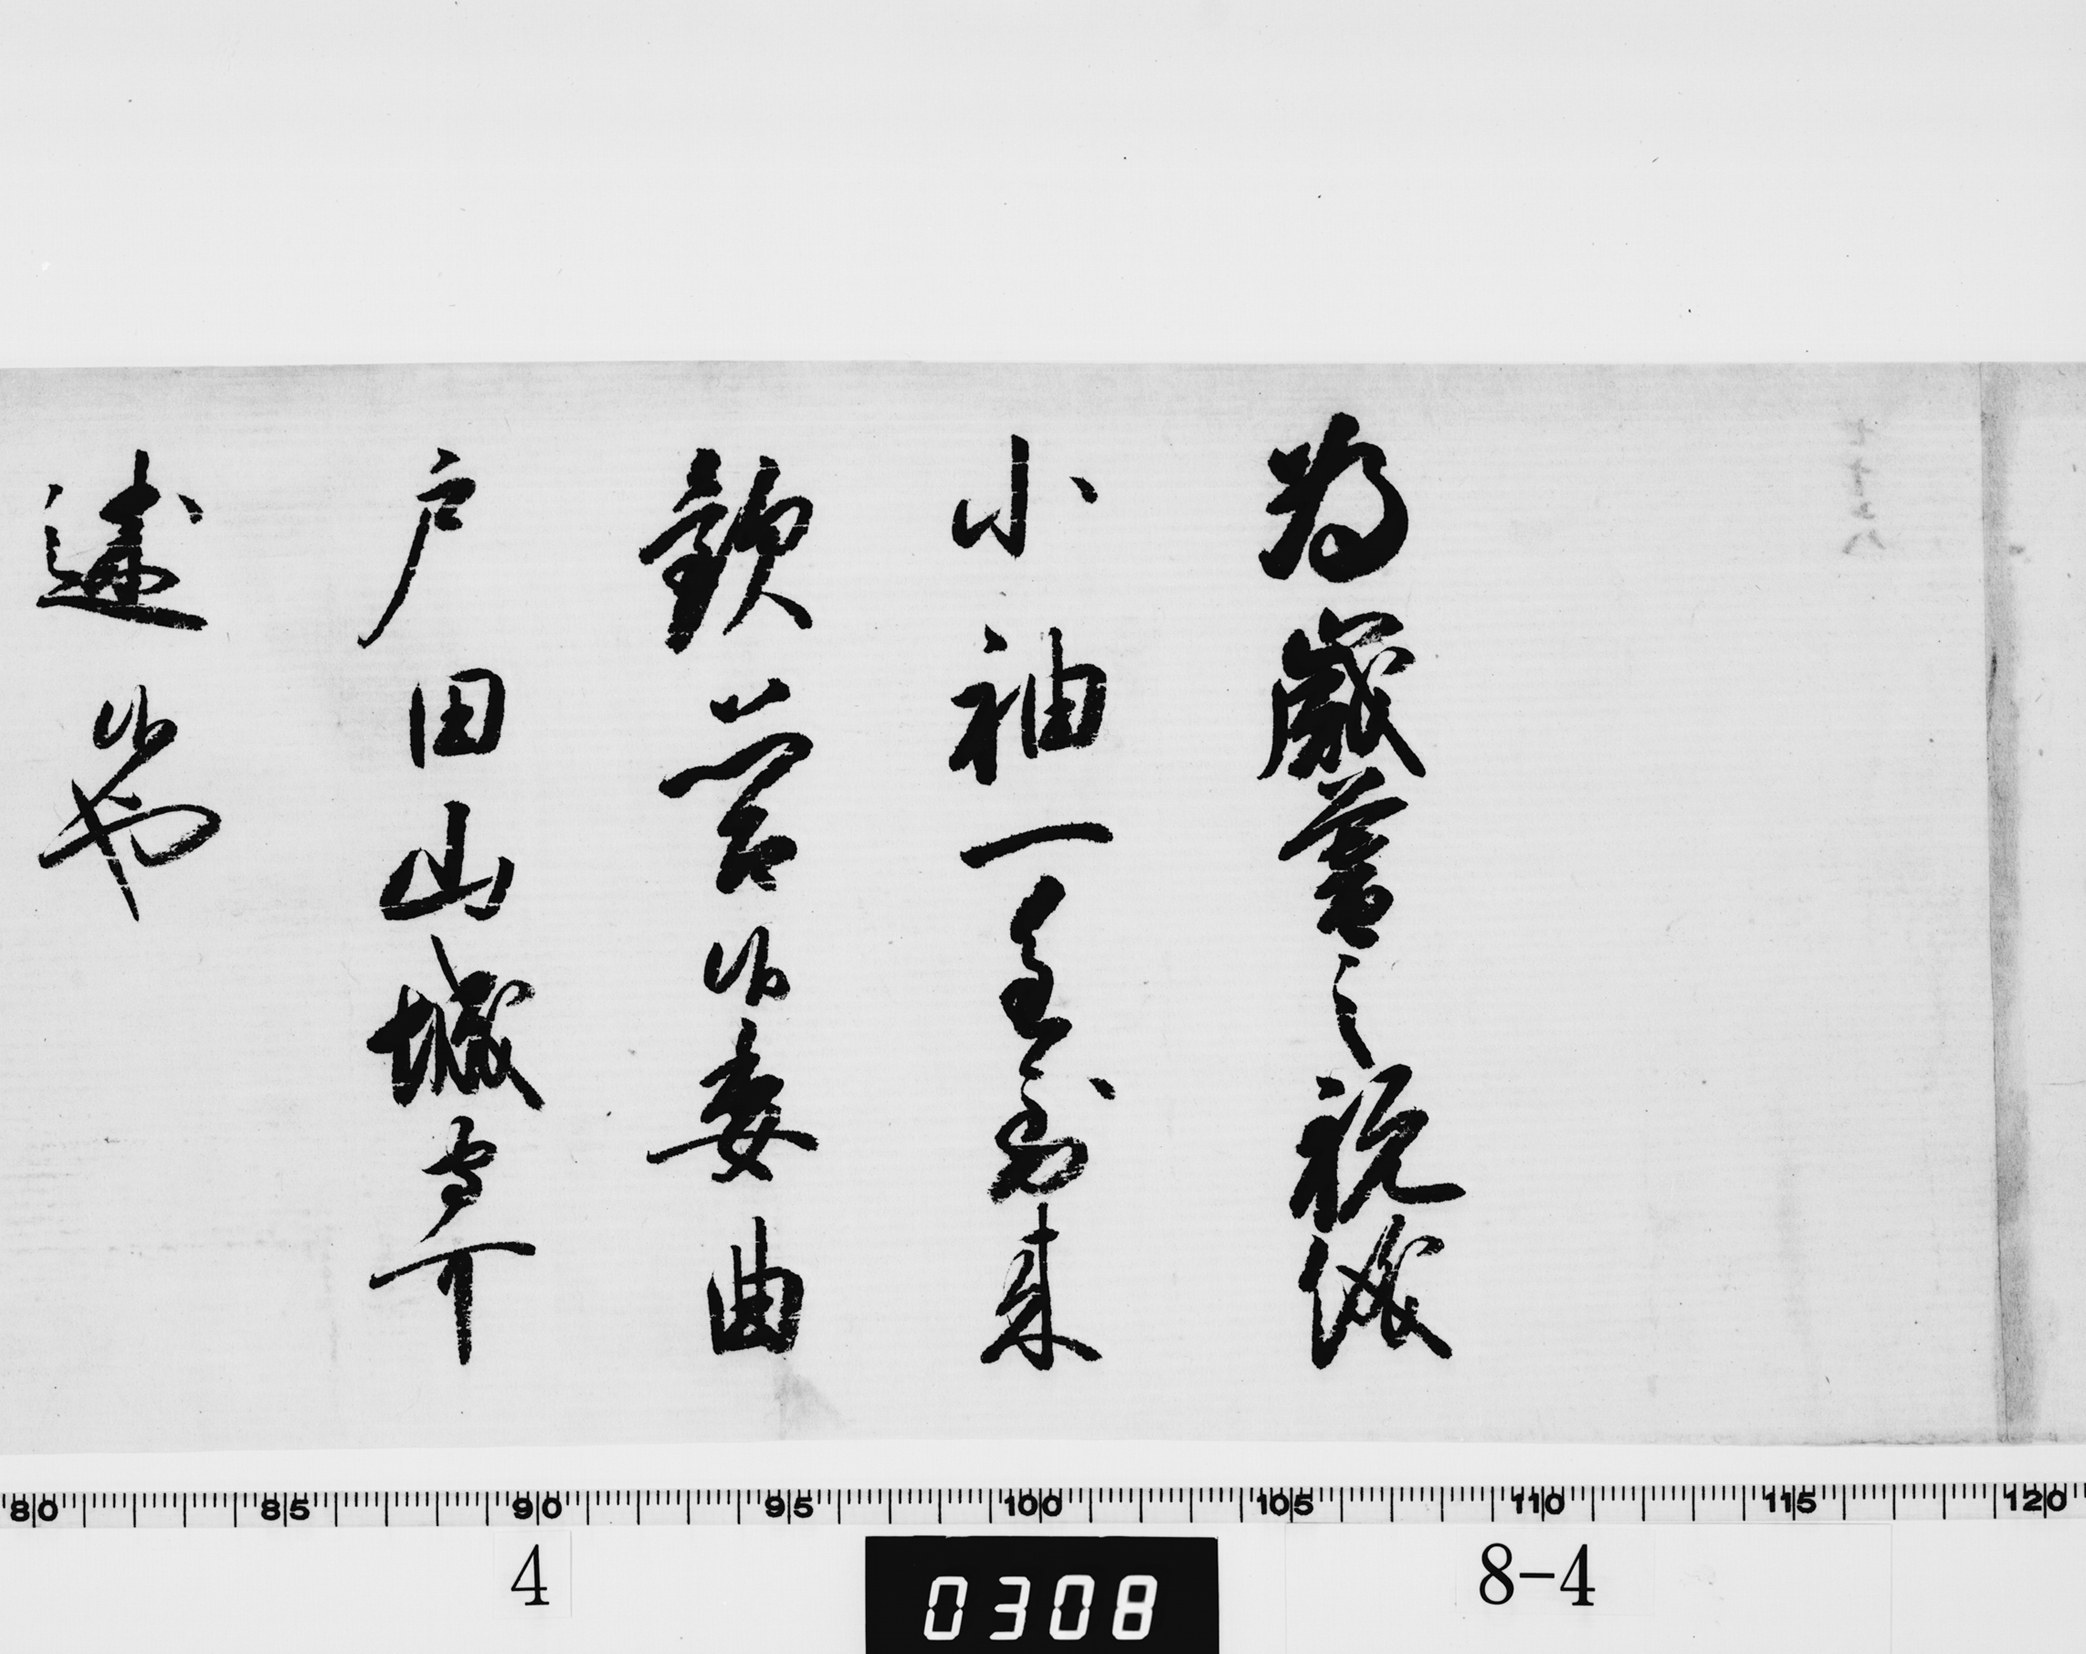 為歳暮之祝儀
小袖一重到来
歓思召候委曲
戸田山城守可
述候也
80 85 90 95 100 105 110 115 120
4
0308
8-4